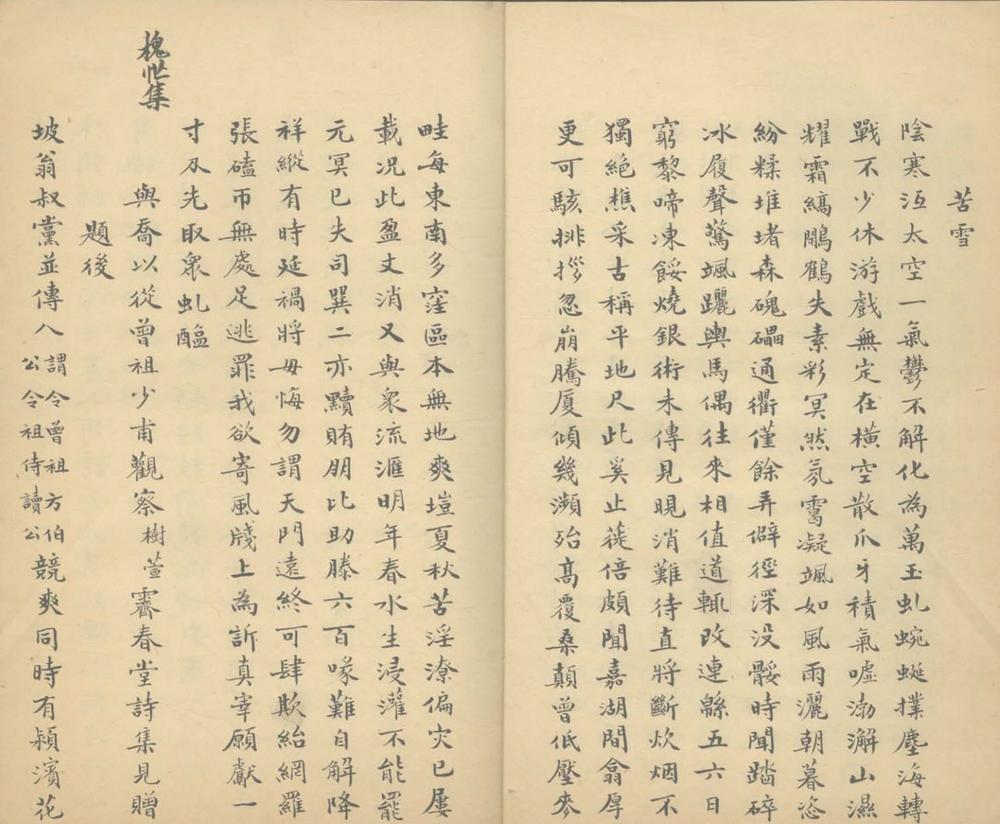 苦雪
陰寒沍太空一氣鬱不解化為萬玉虬蜿蜒撲塵海轉
戰不少休游戲無定在橫空散爪牙積氣噓渤澥山濕
耀霜縞鵰鶴失素彩冥然氛霱凝颯如風雨灑朝暮恣
紛糅堆堵森磈礧通衢僅餘弄僻徑深没骽時聞踏碎
冰履聲驚颯躧輿馬偶往來相值道輒改連緜五六日
窮黎啼凍餒燒銀術未傳見晛消難待直將斷炊烟不
獨絶樵采古稱平地尺此奚止蓰倍頗聞嘉湖間翕厚
更可駭排拶忽崩騰厦傾幾瀕殆髙覆桑顛曾低壓麥
畦每東南多窪區本無地爽塏夏秋苦淫潦偏灾已屢
載况此盈丈消又與衆流滙明年春水生浸灌不能罷
元冥已失司巽二亦黷賄朋比助滕六百喙難自解降
祥縱有時延禍將毋悔勿謂天門遠終可肆欺紿網羅
張磕帀無處足逃罪我欲寄風牋上為訴真宰願獻一
寸刃先取衆虬醢
與喬以從曾祖少甫觀察樹萱霽春堂詩集見贈
題後
坡翁叔黨並傳八謂令曾祖方伯公令祖侍讀公競爽同時有潁濱花
槐忙集